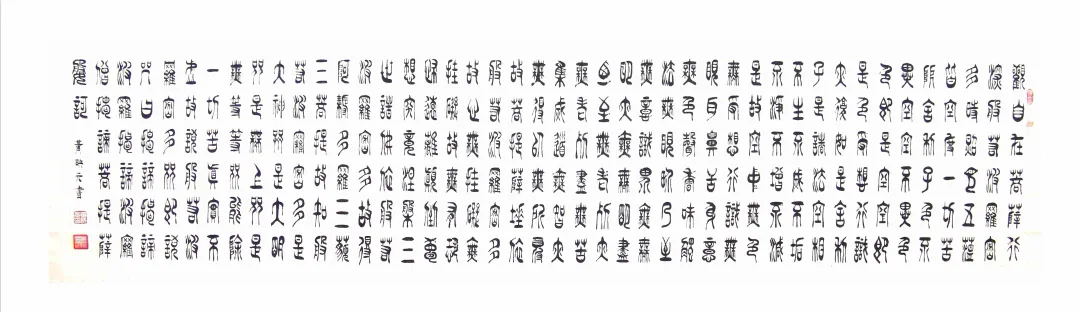 觀自在菩薩行
深般若波羅蜜
多時照見五蘊
皆空度一切苦
厄舍利子色不
異空空不異色
色即是空空即
是色受想行識
亦復如是舍利
子是諸法空相
不生不滅不垢
不淨不增不減
是故空中無色
無受想行識無
眼耳鼻舌身意
無色聲香味觸
法無眼界乃至
無意識界無無
明亦無無明盡
乃至無老死亦
無老死盡無苦
集滅道無智亦
無得以無所得
故菩提薩埵依
般若波羅蜜多
故心無罣礙無
罣礙故無有恐
怖遠離顛倒夢
想究竟涅槃三
世諸佛依般若
波羅蜜多故得
阿耨多羅三藐
三菩提故知般
若波羅蜜多是
大神咒是大明
咒是無上咒是
無等等咒能除
一切苦真實不
虛故說般若波
羅蜜多咒即說
咒曰揭諦揭諦
波羅揭諦波羅
僧揭諦菩提薩
婆訶
元書